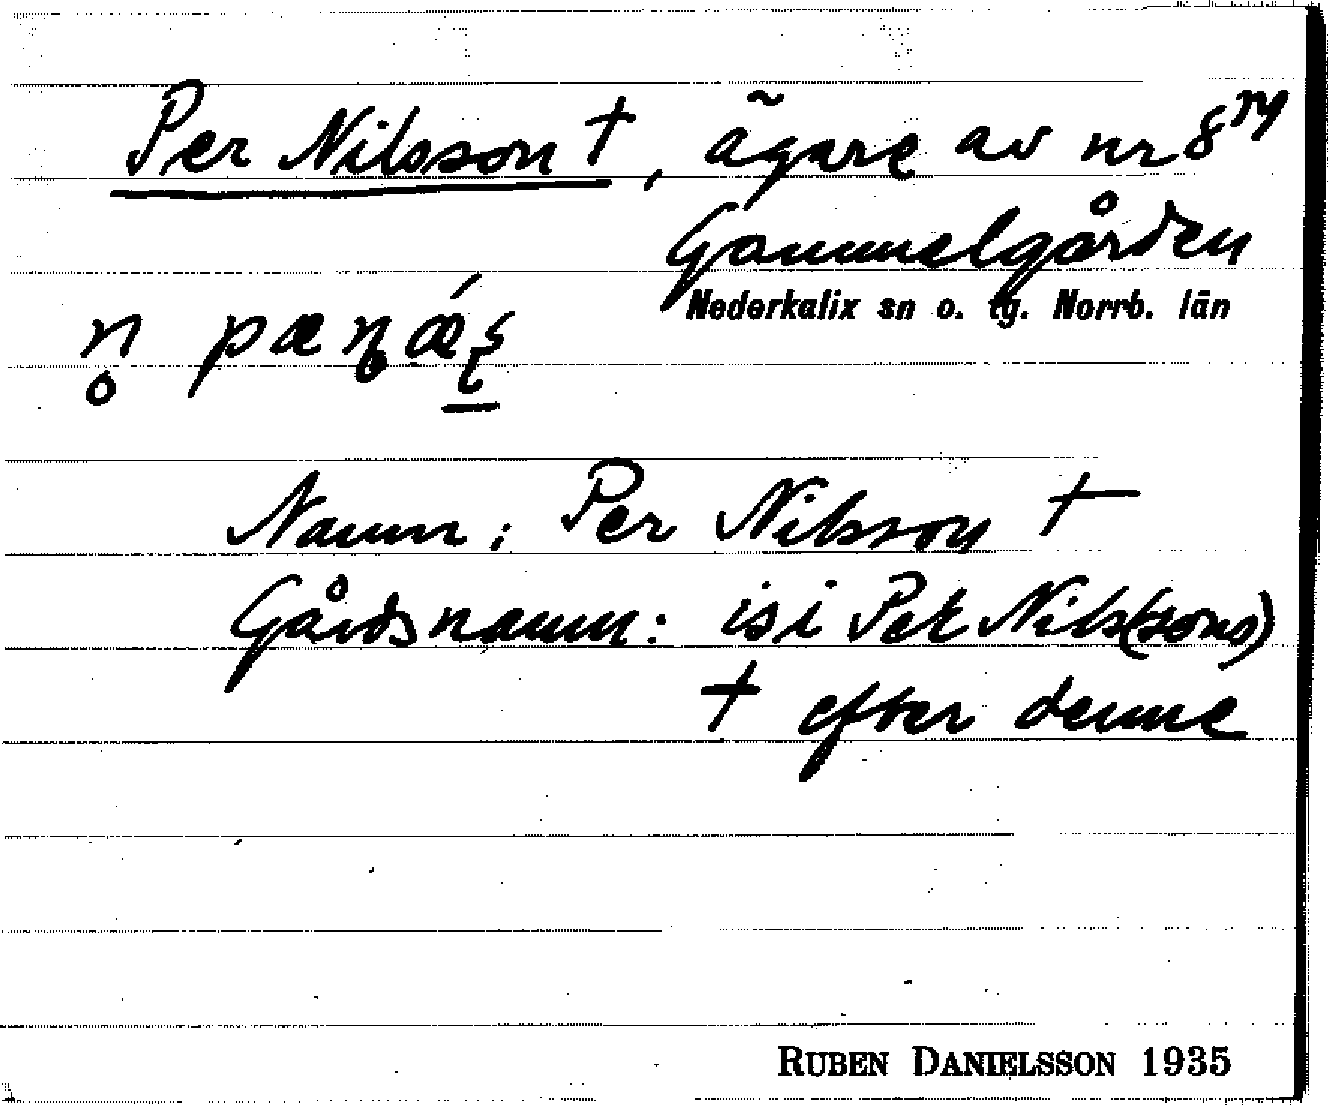 Per Nilsson †, ägare av nr 8
Gammelgården
Nederkalix sn o. tg. Norrb. län
Namn: Per Nilsson †
Gårdsnamn: isi Pek Nils(sons)
† efter denne
RUBEN DANIELSSON 1935